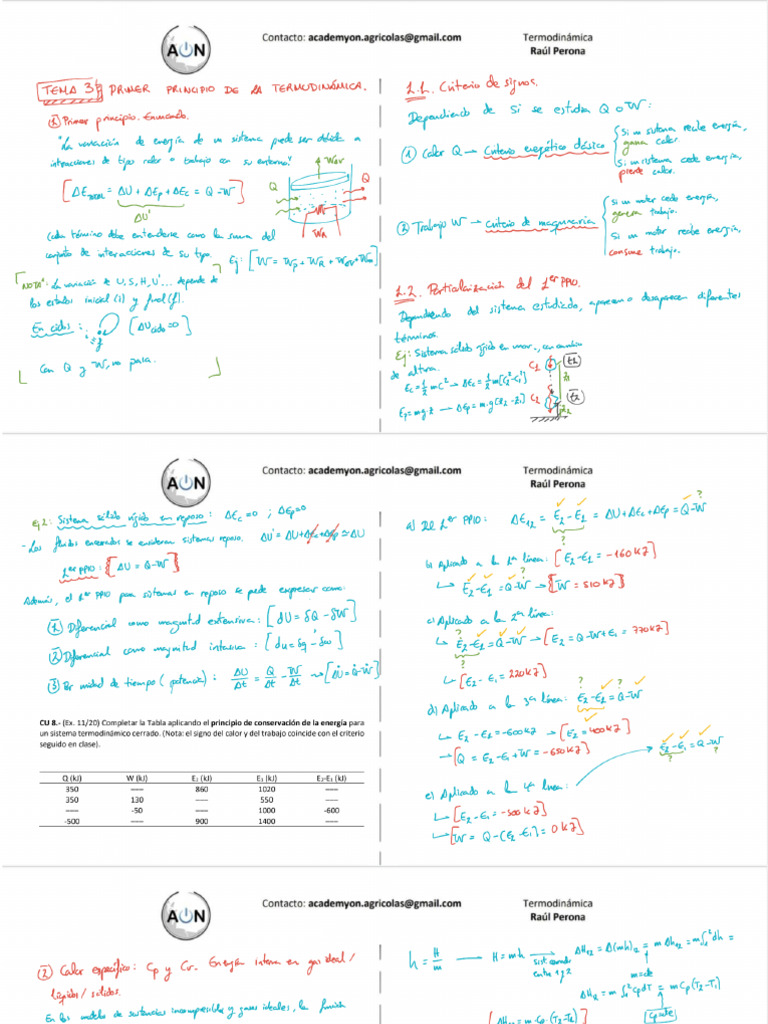 AON
Contacto: academyon.agricolas@gmail.com
Termodinámica
Raúl Perona
TEMA 3: PRIMER PRINCIPIO DE LA TERMODINÁMICA.
① Primer principio. Enunciado.
"La variación de energía de un sistema puede ser debida a
interacciones de tipo calor o trabajo en su entorno"
[ΔE_TOTAL = ΔU + ΔEp + ΔEc = Q - W]
ΔU'
Q
Q
W
W_R
Cada término debe entenderse como la suma del
conjunto de interacciones de su tipo.
Ej:
"NOTA": La variación de U, S, H, U'... depende de
los estados inicial (i) y final (f).
En ciclos:
[ΔU_ciclo = 0]
Con Q y W, no pasa.
1.1. Criterio de signos.
Dependiendo de si se estudia Q o W:
① Calor Q → Criterio energético clásico
Si un sistema recibe energía,
gana calor.
Si un sistema cede energía,
pierde calor.
② Trabajo W → criterio de maquinaria
Si un motor cede energía,
genera trabajo.
Si un motor recibe energía,
consume trabajo.
1.2. Particularización del 1er PPIO.
Dependiendo del sistema estudiado, aparecen o desaparecen diferentes
términos.
Ej: Sistema sólido rígido en mov., con cambio
de altura.
Ec = 1/2 mC² → ΔEc = 1/2 m[C₂² - C₁²]
Ep = mgz → ΔEp = m·g(z₂ - z₁)
C1
t1
z1
C2
t2
z2
AON
Contacto: academyon.agricolas@gmail.com
Termodinámica
Raúl Perona
Ej2: Sistema sólido rígido en reposo: ΔEc = 0 ; ΔEp = 0
- Los fluidos encerrados se consideran sistemas reposo. ΔU' = ΔU + ΔEc + ΔEp ≃ ΔU
1er PPIO: [ΔU = Q - W]
Además, el 1er PPIO para sistemas en reposo se puede expresar como:
① Diferencial como magnitud extensiva: [dU = δQ - δW]
② Diferencial como magnitud intensiva: [du = δq - δw]
③ Por unidad de tiempo (potencia): ΔU/Δt = Q/Δt - W/Δt → [ΔU̇ = Q̇ - Ẇ]
CU 8.- (Ex. 11/20) Completar la Tabla aplicando el principio de conservación de la energía para
un sistema termodinámico cerrado. (Nota: el signo del calor y del trabajo coincide con el criterio
seguido en clase).
Q (kJ) W (kJ) E₂ (kJ) E₁ (kJ) E₂-E₁ (kJ)
350 ----- 860 1020 -----
350 130 ----- 550 -----
----- -50 ----- 1000 -600
-500 ----- 900 1400 -----
a) Del 1er PPIO: ΔE₁₂ = E₂ - E₁ = ΔU + ΔEc + ΔEp = Q - W
?
?
b) Aplicado a la 1ª línea: [E₂ - E₁ = -160 kJ]
E₂ - E₁ = Q - W → [W = 510 kJ]
c) Aplicado a la 2ª línea:
E₂ - E₁ = Q - W → [E₂ = Q - W + E₁ = 770 kJ]
?
[E₂ - E₁ = 220 kJ]
d) Aplicado a la 3ª línea: E₂ - E₁ = Q - W
?
E₂ - E₁ = -600 kJ → [E₂ = 400 kJ]
[Q = E₂ - E₁ + W = -650 kJ]
E₂ - E₁ = Q - W
?
?
e) Aplicado a la 4ª línea:
[E₂ - E₁ = -500 kJ]
[W = Q - (E₂ - E₁) = 0 kJ]
AON
Contacto: academyon.agricolas@gmail.com
Termodinámica
Raúl Perona
② Calor específico: Cp y Cv. Energía interna en gas ideal /
líquidos / sólidos.
En los modelos de sustancias incompresibles y gases ideales, la función
h = H/m → H = mh
Sist cerrado
entre 1 y 2
ΔH₁₂ = Δ(mh)₁₂ = mΔh₁₂ = m∫₁² dh =
m=cte
ΔH₁₂ = m∫₁² Cp dT = m Cp (T₂ - T₁)
Cp=cte
[ΔH₁₂ = m Cp·(T₂ - T₁)]